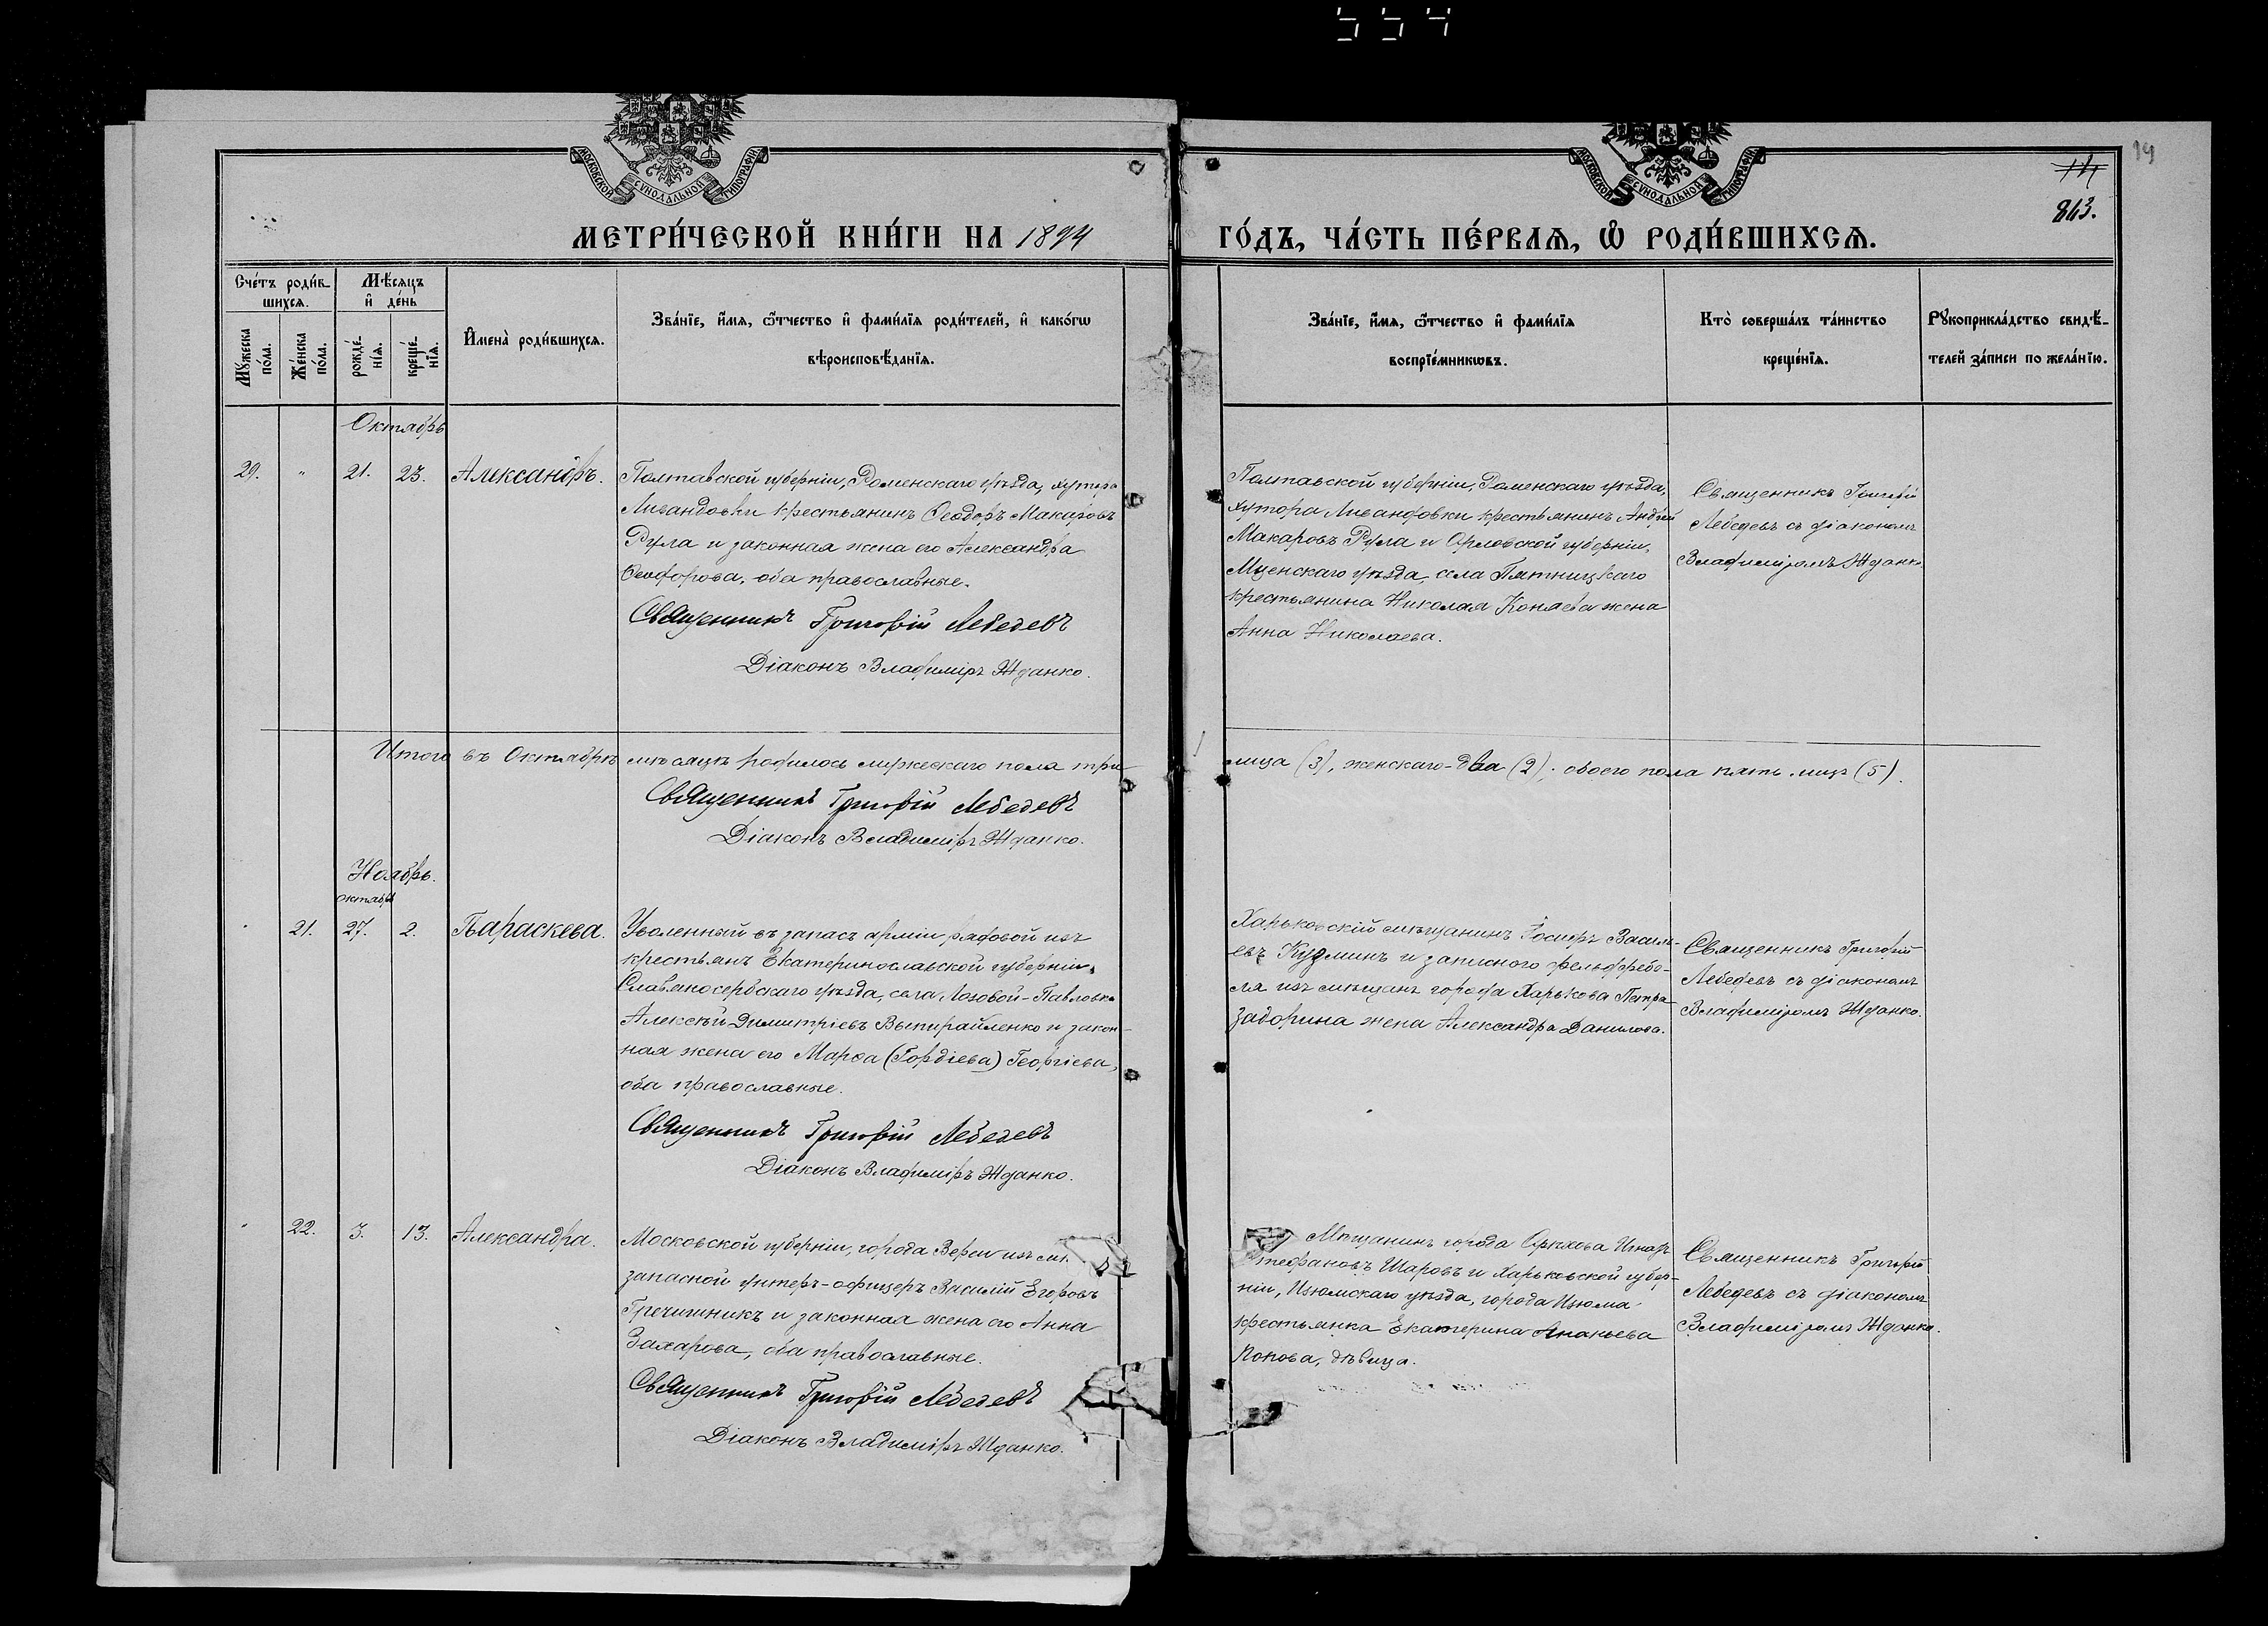 554
МОСКОВСКОЙ СУНОДАЛЬНОЙ ТИПОГРАФІИ
МОСКОВСКОЙ СУНОДАЛЬНОЙ ТИПОГРАФІИ
19
14
863.
МЕТРИ́ЧЕСКОЙ КНИ́ГИ НА 1894
ГО́ДЪ, ЧА́СТЬ ПЕ́РВАѦ, Ѡ РОДИ́ВШИХСѦ.
Сче́тъ роди́в-
шихсѧ.
Мѣ́сѧцъ
и҆ де́нь
Мꙋжеска по́ла.
Же́нска по́ла.
рожде́-
нїѧ.
креще́-
нїѧ.
И҆мена̀ роди́вшихсѧ.
Зва́нїе, и҆́мѧ, ѻ҆́тчество и҆ фами́лїѧ роди́телей, и҆ како́гѡ
вѣроисповѣ́данїѧ.
Зва́нїе, и҆́мѧ, ѻ҆́тчество и҆ фами́лїѧ
воспрїе́мникѡвъ.
Кто̀ соверша́лъ та́инство
креще́нїѧ.
Рꙋкоприкла́дство свидѣ́-
телей за́писи по жела́нїю.
Октябрь
29. " 21. 23. Александръ.
Полтавской губерніи, Роменскаго уѣзда, хутора
Лизандовки крестьянинъ Ѳеодоръ Макаровъ
Рула и законная жена его Александра
Ѳеодорова, оба православные.
Священникъ Григорій Лебедевъ
Діаконъ Владиміръ Жданко.
Полтавской губерніи, Роменскаго уѣзда,
хутора крестьянинъ Андрей
Макаровъ Рула и Орловской губерніи,
Мценскаго уѣзда, села Пятницкаго
крестьянина Николая Коняева жена
Анна Николаева.
Священникъ Григорій
Лебедевъ съ діакономъ
Владиміромъ Жданко
Итого въ Октябрѣ мѣсяцѣ родилось мужескаго пола три
лица (3), женскаго - два (2); обоего пола пять лицъ (5).
Священникъ Григорій Лебедевъ
Діаконъ Владиміръ Жданко.
Ноябрь.
октября
21. 27. 2. Параскева.
Уволенный въ запасъ арміи рядовой изъ
крестьянъ Екатеринославской губерніи,
Славяносербскаго уѣзда, села Лозовой-Павловки
Алексѣй Димитріевъ Выпирайленко и закон-
ная жена его Марѳа (Гордіева) Георгіева,
оба православные.
Священникъ Григорій Лебедевъ
Діаконъ Владиміръ Жданко.
Харьковскій мѣщанинъ Іосифъ Василь-
евъ Кузминъ и запаснаго фельдфебе-
ля изъ мѣщанъ города Харькова Петра
Задорина жена Александра Данилова.
Священникъ Григорій
Лебедевъ съ діакономъ
Владиміромъ Жданко.
22. 3. 13. Александра.
Московской губерніи, города Вереи изъ мѣ
запасной унтеръ-офицеръ Василій Егоровъ
Гречишникъ и законная жена его Анна
Захарова, оба православные.
Священникъ Григорій Лебедевъ
Діаконъ Владиміръ Жданко.
Мѣщанинъ города
Стефановъ Шаровъ и Харьковской губер-
ніи, Изюмскаго уѣзда, города Изюма
крестьянка Екатерина Ананьева
Попова, дѣвица.
Священникъ Григорій
Лебедевъ съ діакономъ
Владиміромъ Жданко.